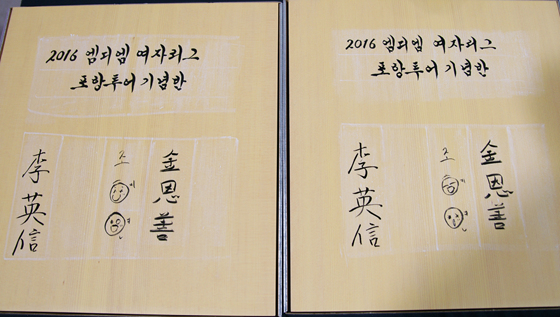 2016 엠디엠 여자리그
포항투어 기념반
李英信
조
金恩善
2016 엠디엠 여자리그
포항투어 기념반
李英信
조
金恩善